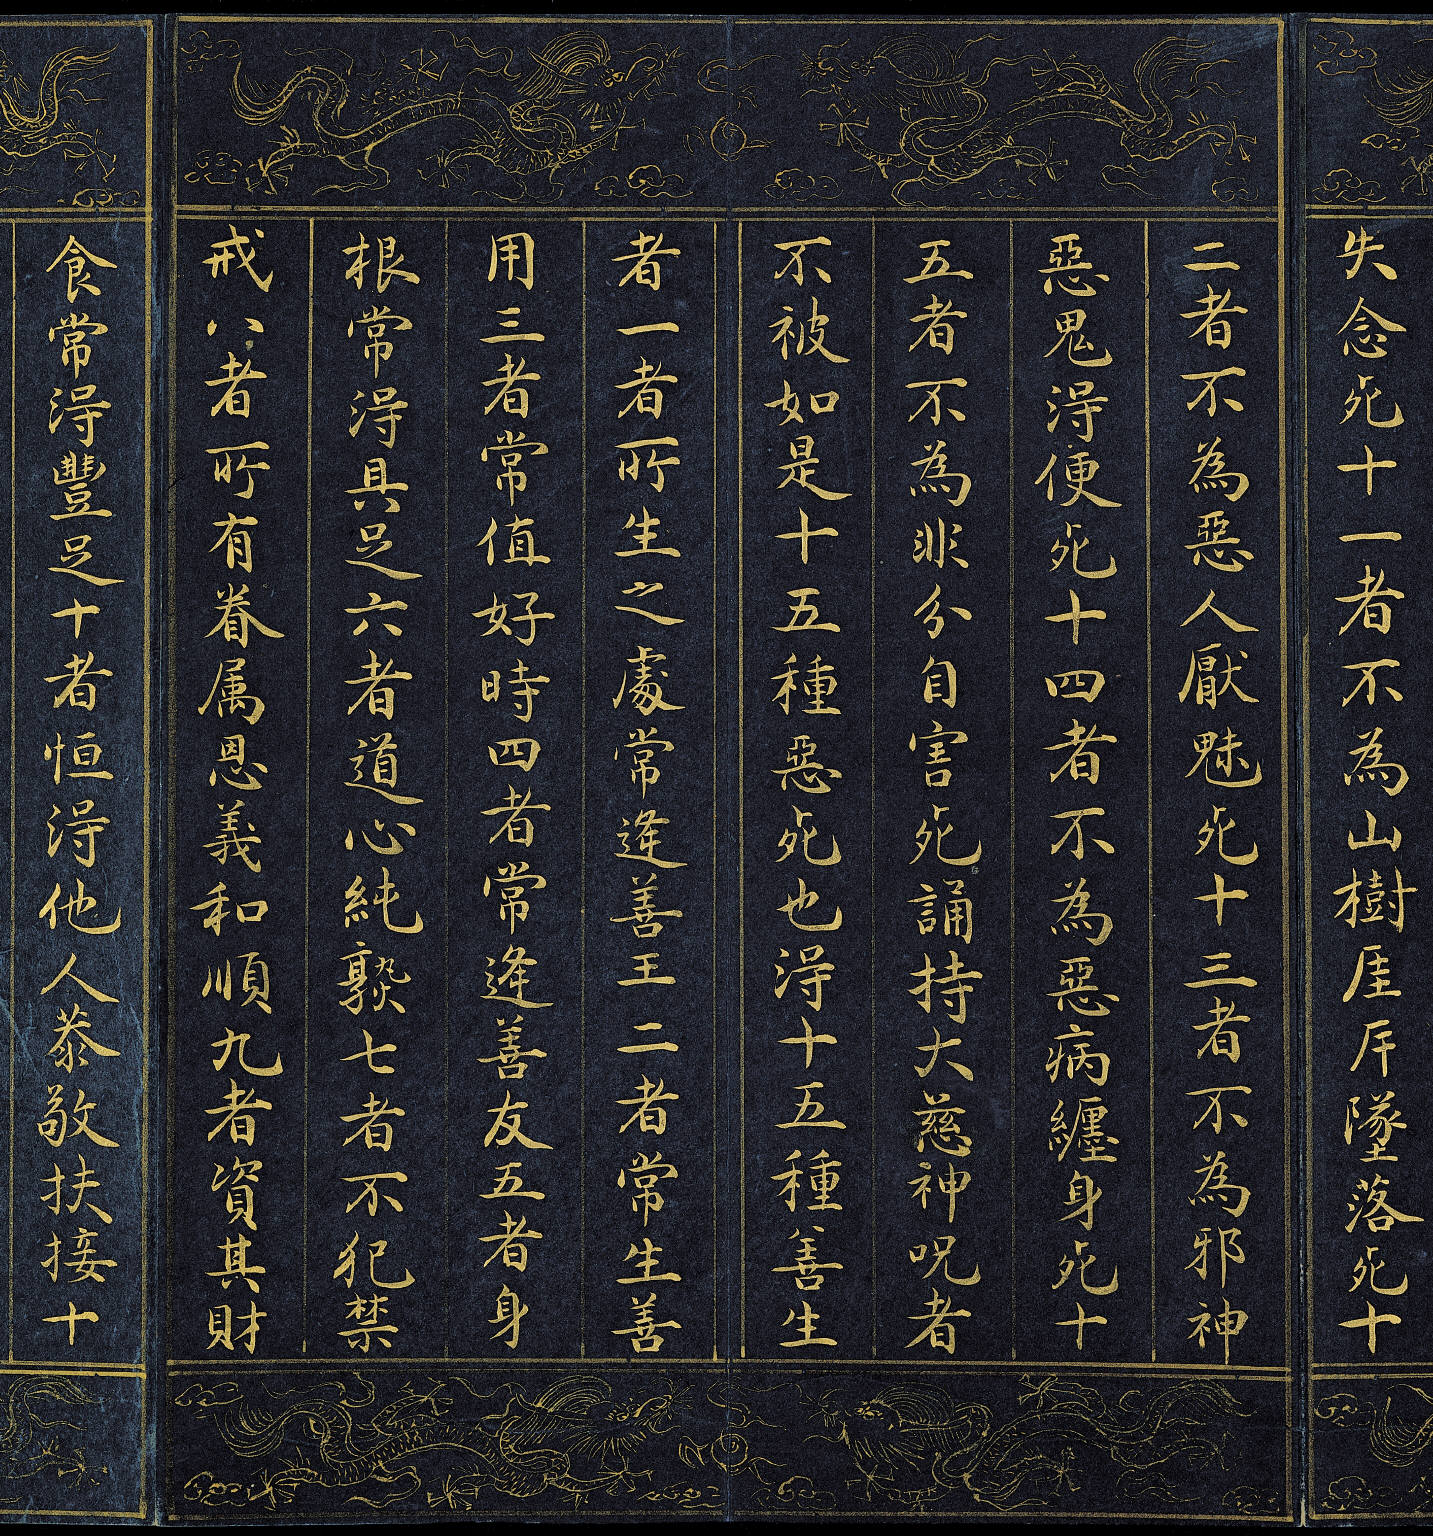 失念死十一者不為山樹崖岸墜落死十
二者不為惡人厭魅死十三者不為邪神
惡鬼得便死十四者不為惡病纏身死十
五者不為非分自害死誦持大慈神呪者
不被如是十五種惡死也得十五種善生
者一者所生之處常逢善王二者常生善
用三者常值好時四者常逢善友五者身
根常得具足六者道心純熟七者不犯禁
戒八者所有眷属恩義和順九者資其財
食常得豐足十者恒得他人恭敬扶接十